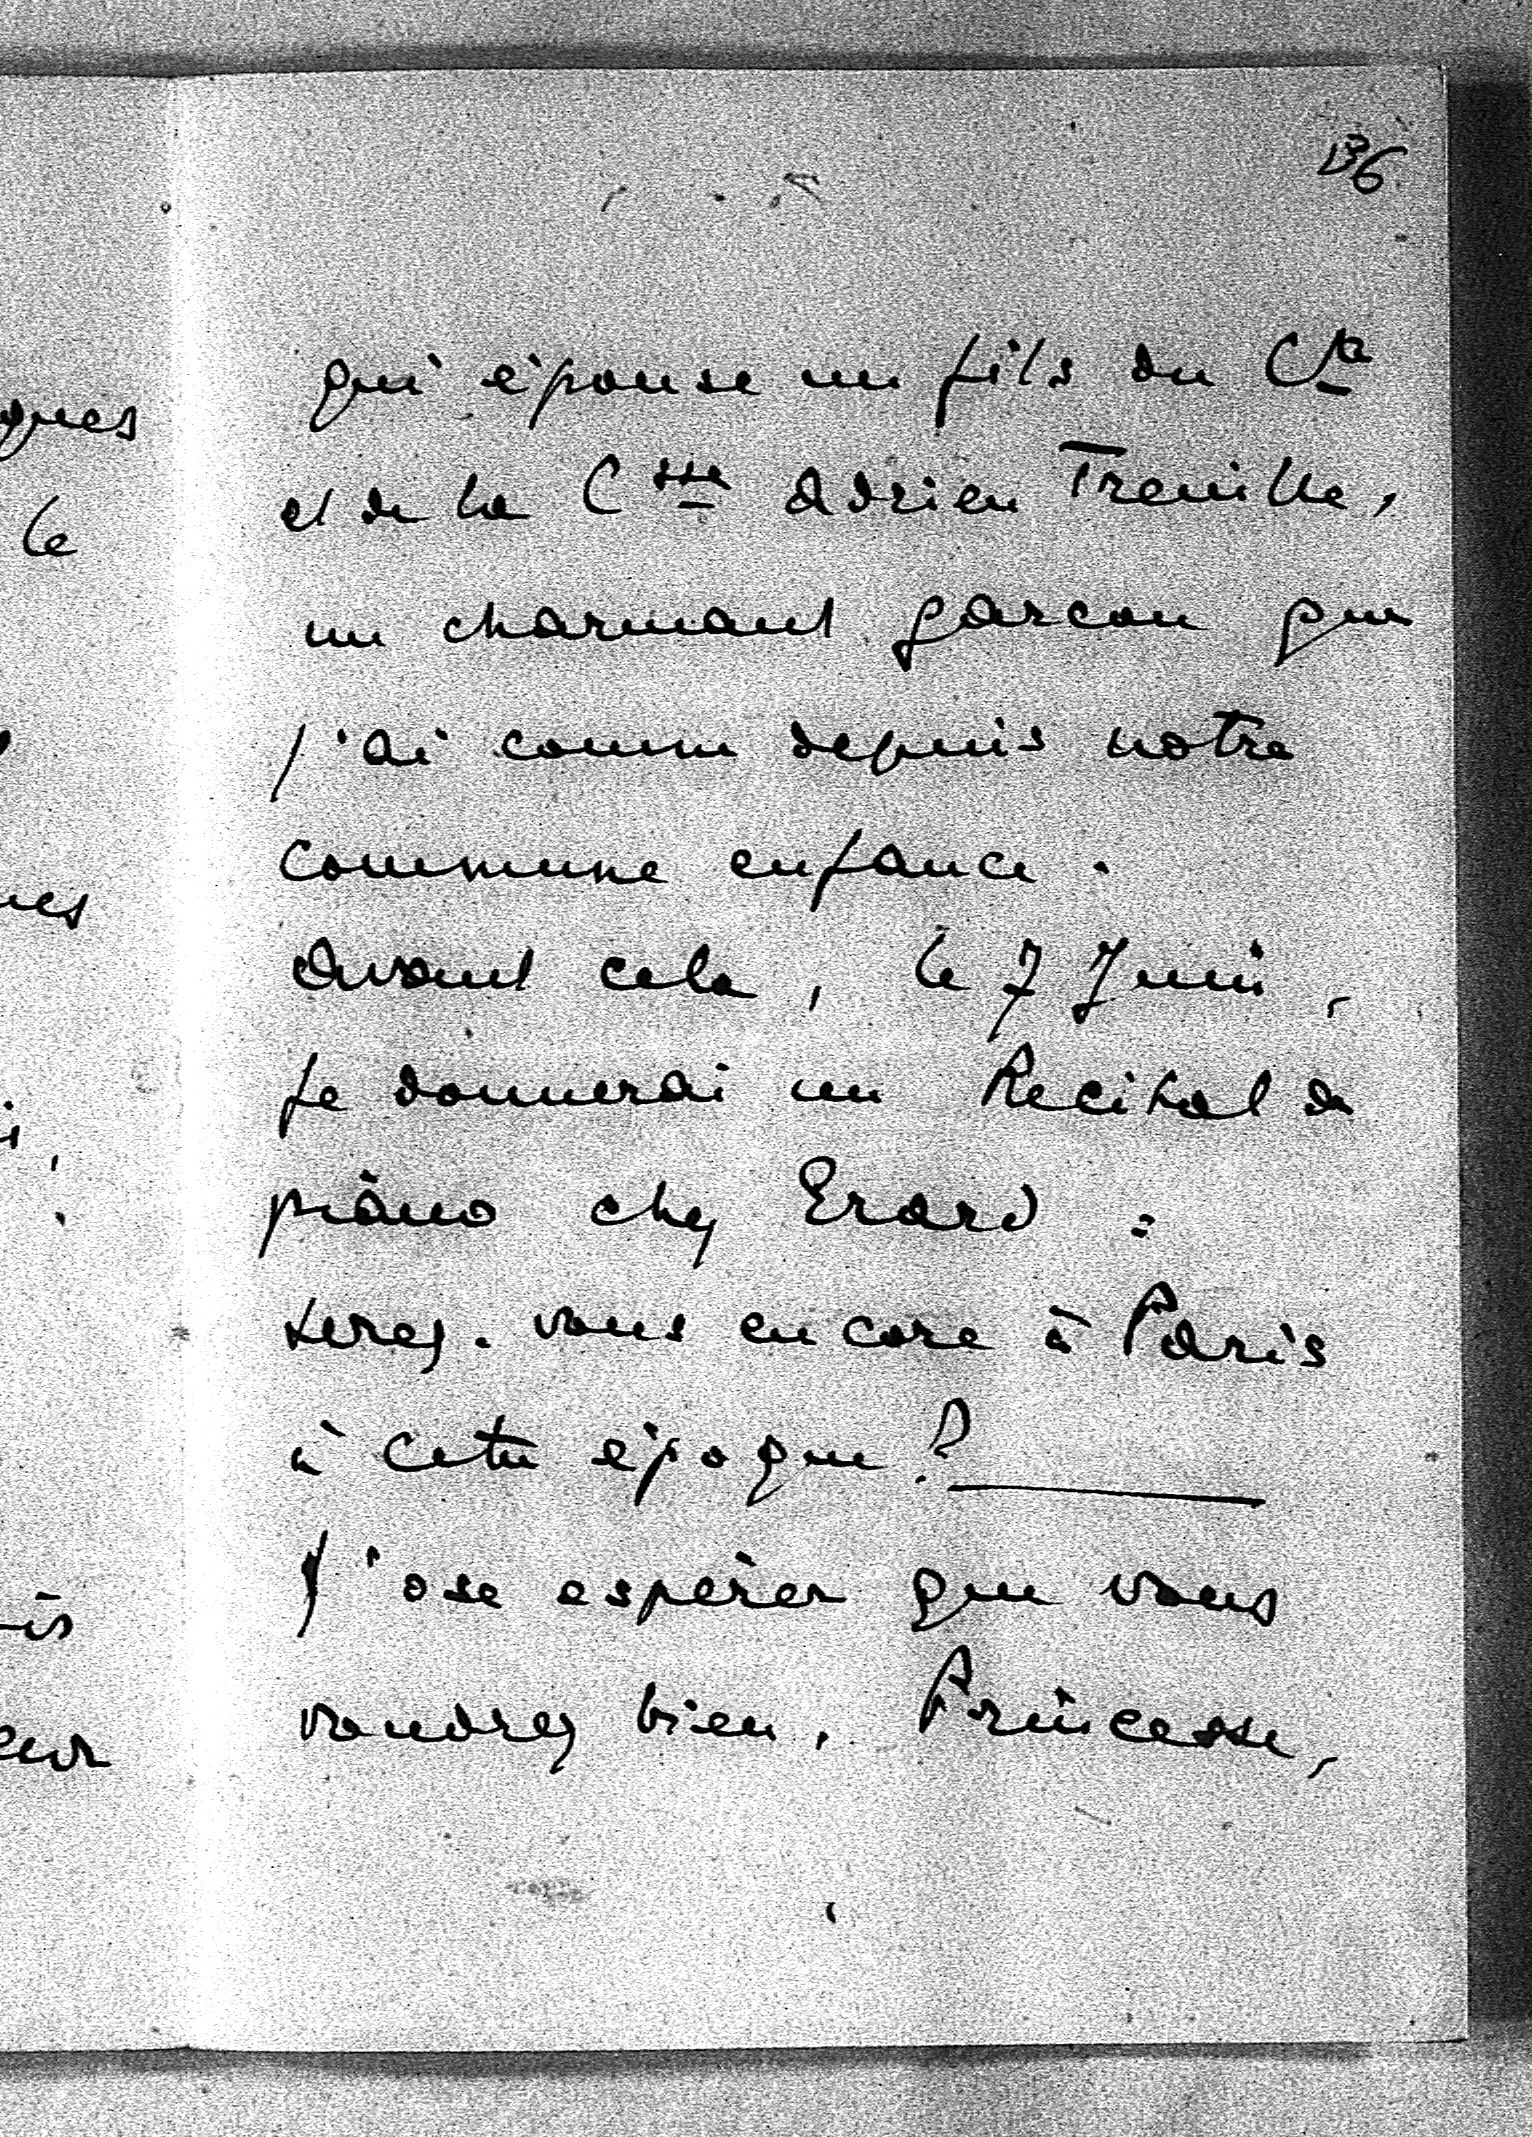 136
qui épouse un fils du Cte
et de la Csse Adrien Treuille,
un charmant garcon que
j'ai connu depuis notre
commune enfance.
Avant cela, le 7 Juin,
je donnerai un Recital de
piano chez Erard :
serez-vous encore à Paris
à cette époque ?
J'ose espérer que vous
voudrez bien, Princesse,
gues
le
nes